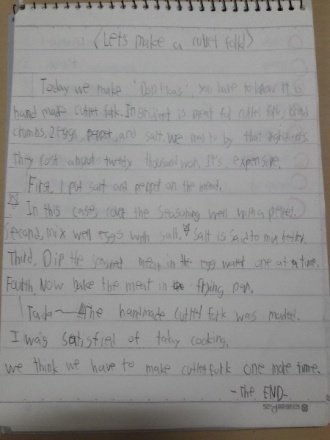 <Let's make a cutlet fork!>
Today we make "Donkkas". You have to know it is
hand made cutlet fork. Ingredient is meat for cutlet fork, bread
chumbs, 2 eggs, pepper, and salt. We need to buy that
They cost about twenty thousand won. It's expensive.
First, I put salt and pepper on the
In this case, the seasoning well with a
Second, mix well eggs with salt. Salt is said to my
Third. Dip the meat in the egg water one at a time.
Fourth Now bake the meat in the frying pan.
Tada~ The handmade cutlet fork was maded.
I was satisfied of today cooking.
we think we have to make cutlet fork one more time.
-The END-